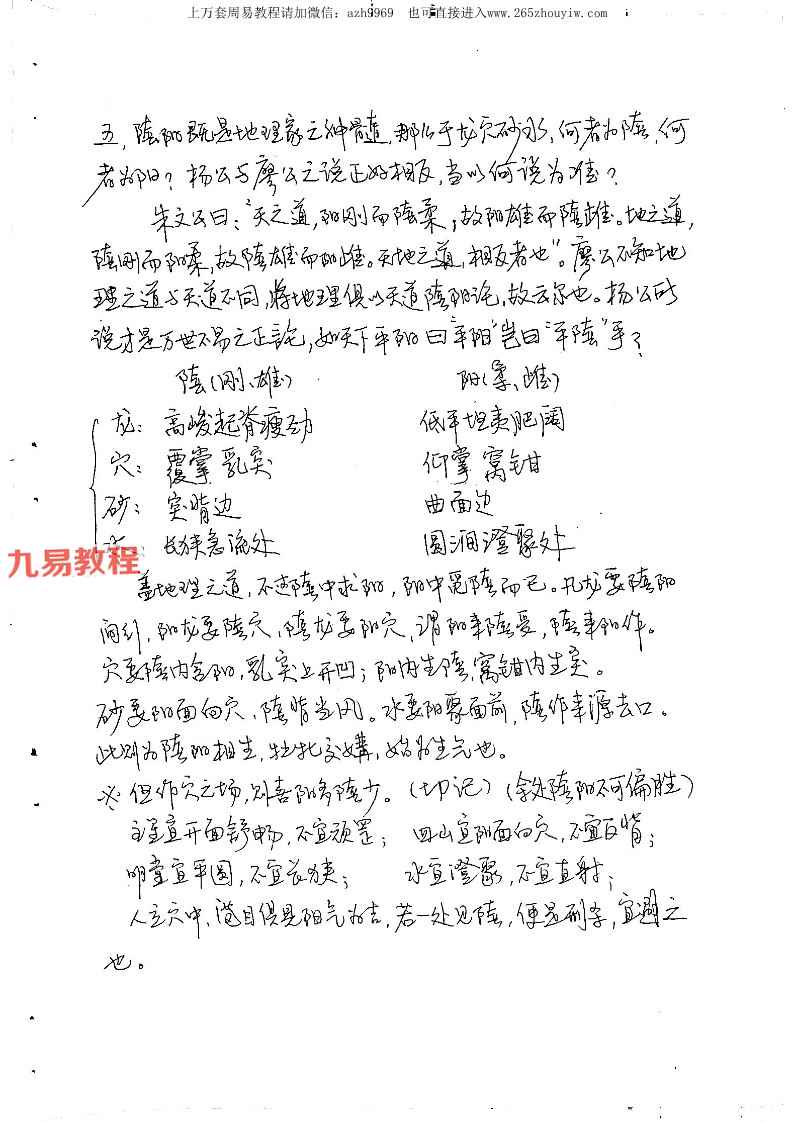 上万套周易教程请加微信：azh9969 也可直接进入www.265zhouyiw.com
五，陰阳既是地理家之神髓，那么于龙穴砂水，何者为陰，何
者为阳？杨公与廖公之说正好相反，当以何说为准？
朱文公曰："天之道，阳刚而陰柔，故阳雄而陰雌。地之道，
陰刚而阳柔，故陰雄而阳雌。天地之道，相反者也"。廖公不知地
理之道与天道不同，将地理俱以天道陰阳论，故云尔也。杨公所
说才是万世不易之正论，如天下平阳曰"平阳"岂曰"平陰"乎？
陰(刚、雄) 阳(柔、雌)
龙：高峻起脊瘦劲 低平坦夷肥阔
穴：覆掌乳突 仰掌窝钳
砂：突背边 曲面边
水：长狭急流处 圆洄澄聚处
九易教程
盖地理之道，不过陰中求阳，阳中觅陰而已。凡龙要陰阳
间行，阳龙要陰穴，陰龙要阳穴，谓阳来陰受，陰来阳作。
穴要陰内含阳，乳突上开凹；阳内生陰，窝钳内生突。
砂要阳面向穴，陰背当风。水要阳聚面前，陰作来源去口。
此则为陰阳相生，牡牝交媾，始为生气也。
※但作穴之场，则喜阳多陰少。（切记）（余处陰阳不可偏胜）
主星宜开面舒畅，不宜顽罡； 四山宜阳面向穴，不宜反背；
明堂宜平圆，不宜长狭； 水宜澄聚，不宜直射；
人立穴中，满目俱是阳气为吉，若一处见陰，便是刑害，宜避之
也。